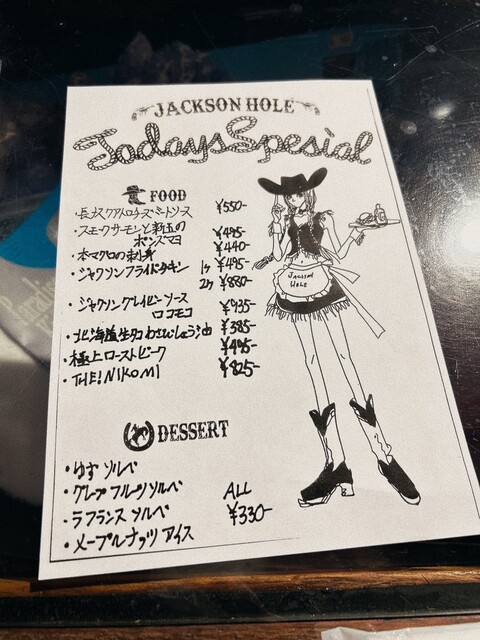 JACKSON HOLE
Todays Spesial
FOOD
・長ナスクアトロチーズミートソース ¥550-
・スモークサーモンと新玉の
ポンズマヨ ¥495-
・本マグロの刺身 ¥440-
・ジャクソンフライドチキン 1ヶ ¥495-
2ヶ ¥880-
・ジャクソングレイビーソース
ロコモコ ¥935-
・北海道生タコわさびしょう油 ¥385-
・極上ローストビーフ ¥495-
・THE!NIKOMI ¥825-
JACKSON
HOLE
DESSERT
・ゆず ソルベ
・グレープフルーツソルベ ALL
・ラフランス ソルベ ¥330-
・メープルナッツ アイス